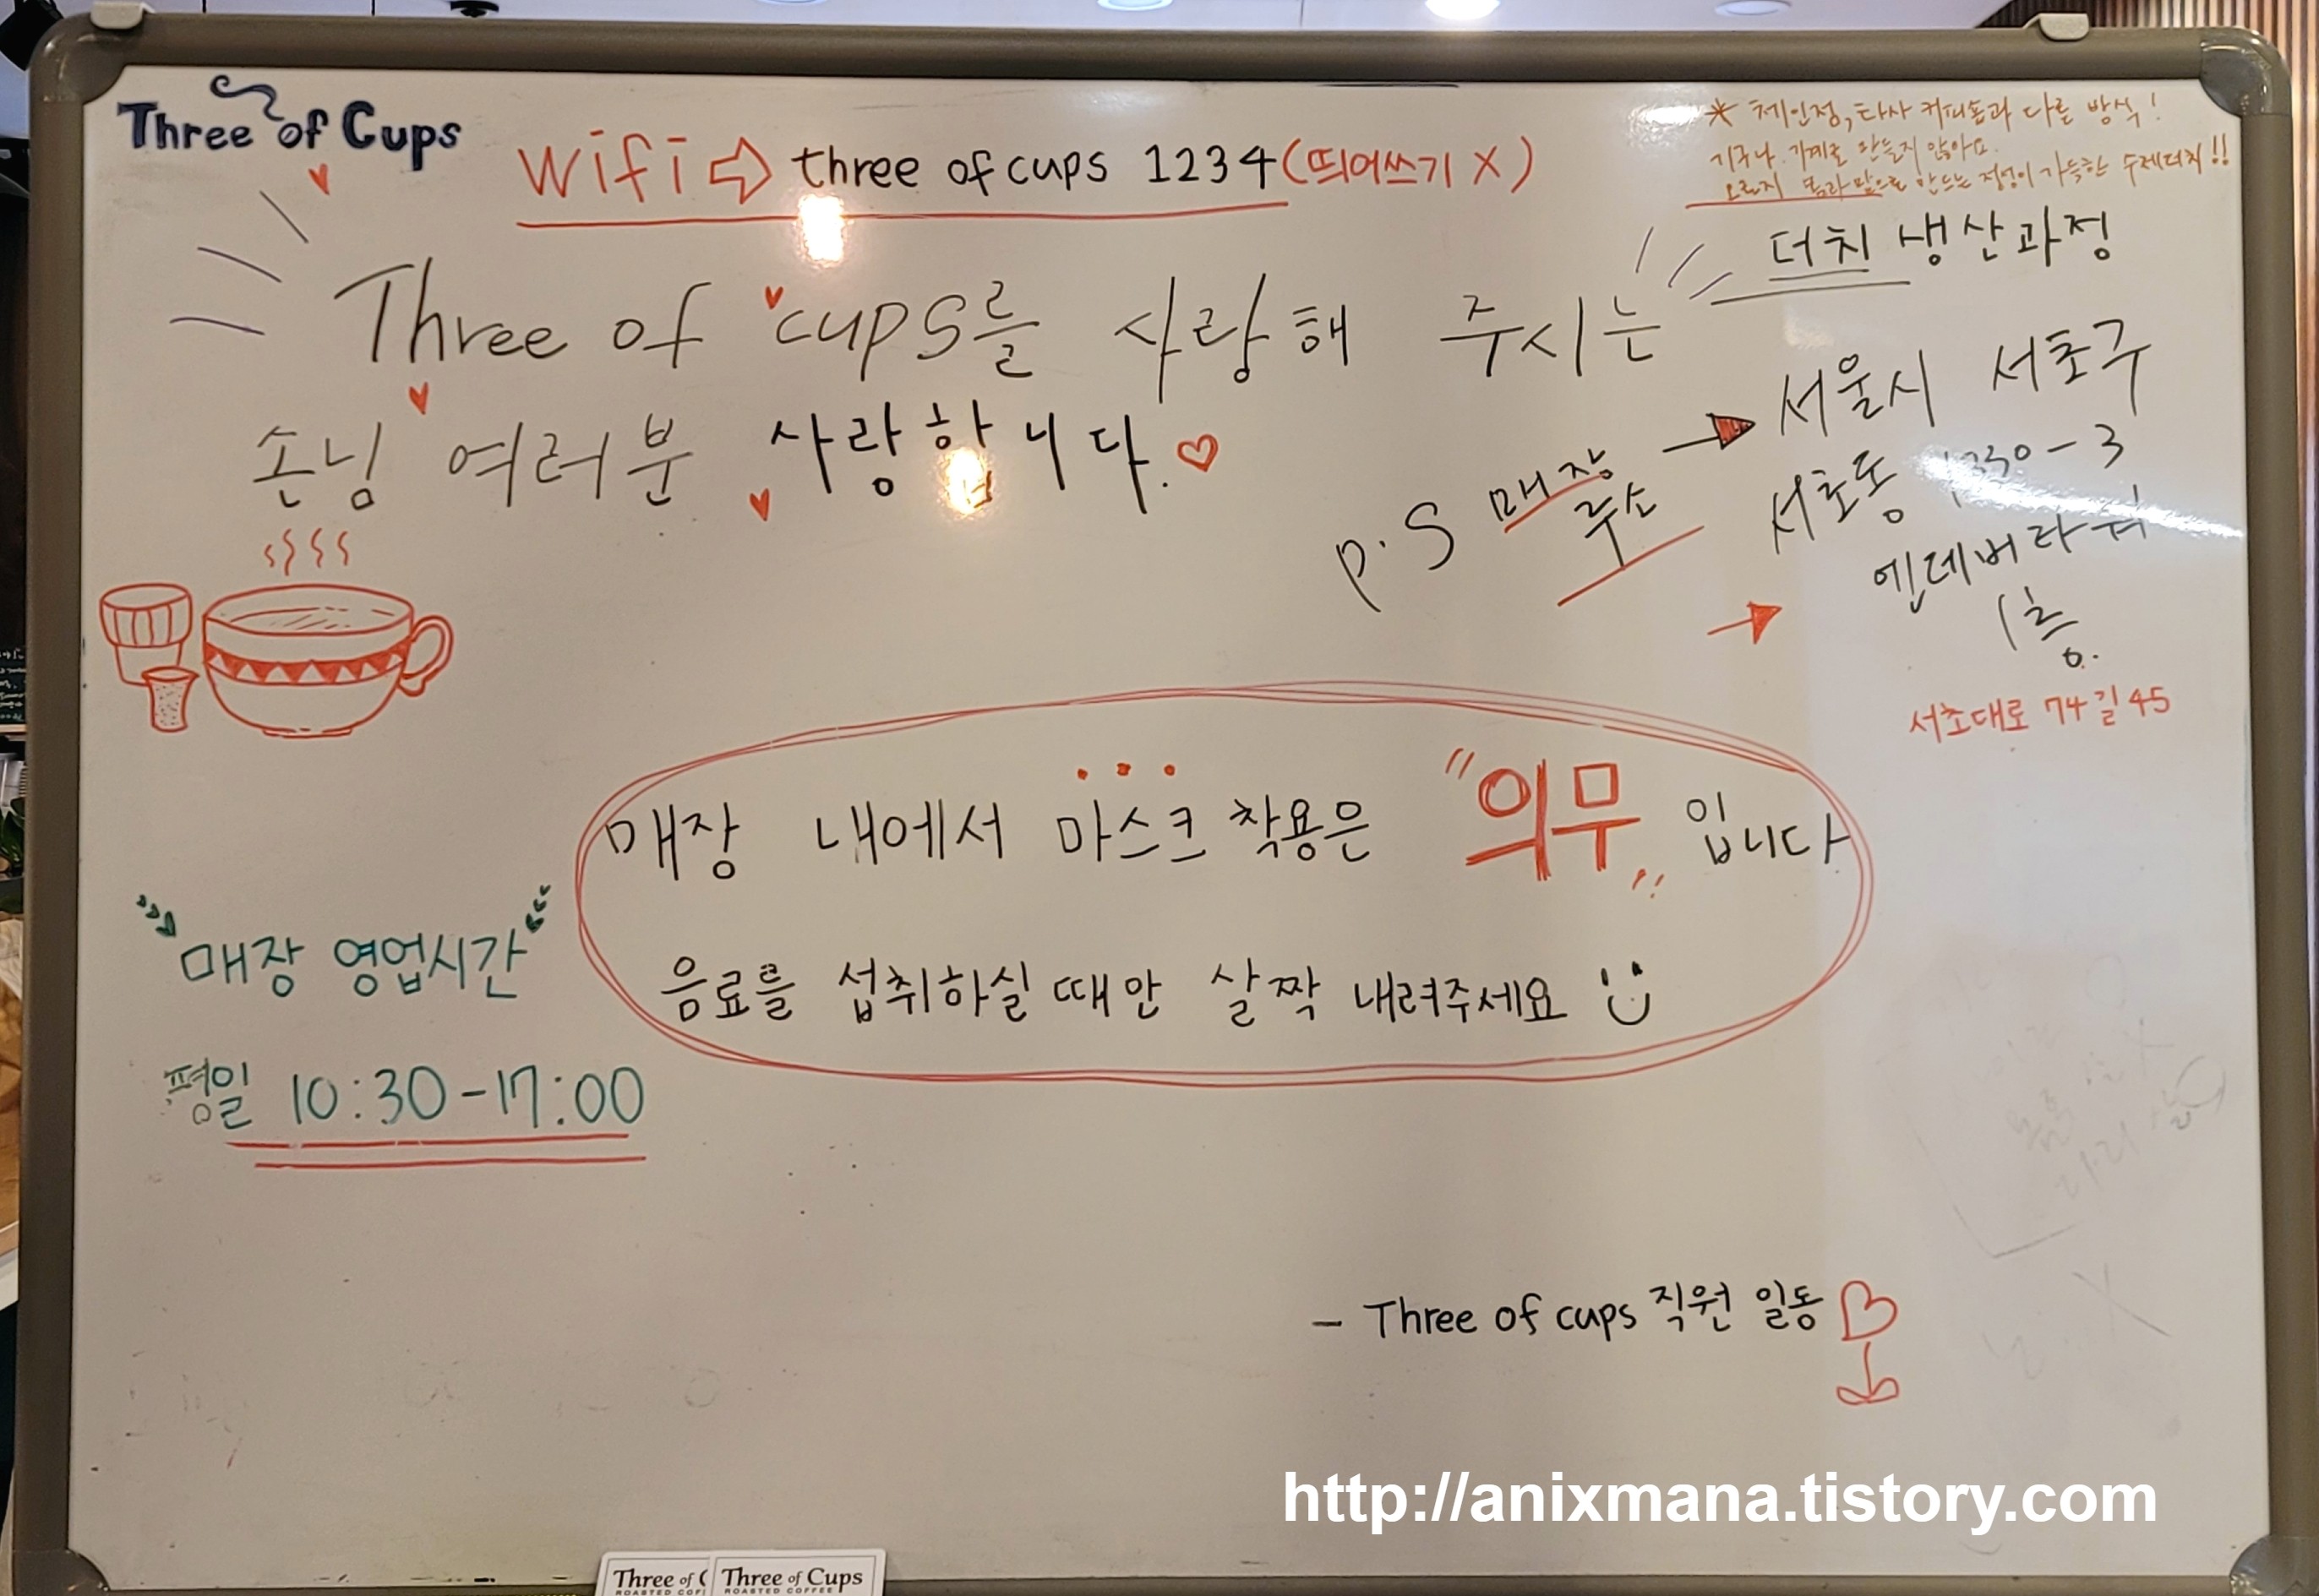 Three of Cups
wifi ⇨ three of cups 1234 (띄어쓰기 X)
* 체인점, 타사 커피숍과 다른 방식!
기구나 기계로 만들지 않아요.
오로지 땀으로 만드는 정성이 가득한 수제더치!!
더치 생산과정
Three of cups를 사랑해 주시는
손님 여러분 사랑합니다.♡
P.S 매장 주소
→ 서울시 서초구
서초동 1330-3
엔데버타워
1층.
→
서초대로 74길 45
매장 내에서 마스크 착용은 "의무" 입니다
음료를 섭취하실 때만 살짝 내려주세요
매장 영업시간
평일 10:30-17:00
- Three of cups 직원 일동
http://anixmana.tistory.com
Three of C
ROASTED COF
Three of Cups
ROASTED COFFEE